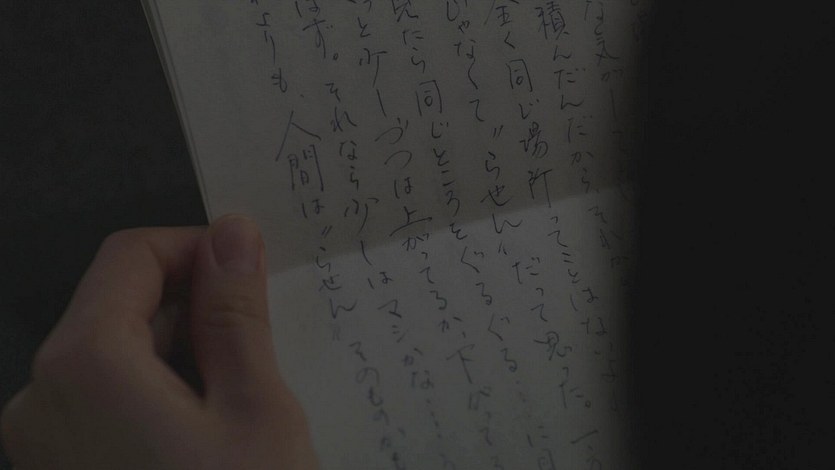 な気がし
積んだんだから、
全く同じ場所ってことはないよ
じゃなくて〝らせん〟だって思った。一
見たら同じところをぐるぐる……に見
っと少しづつは上がってるか下がってる
はず。それなら少しはマシかな……
よりも、人間は〝らせん〟そのものかも